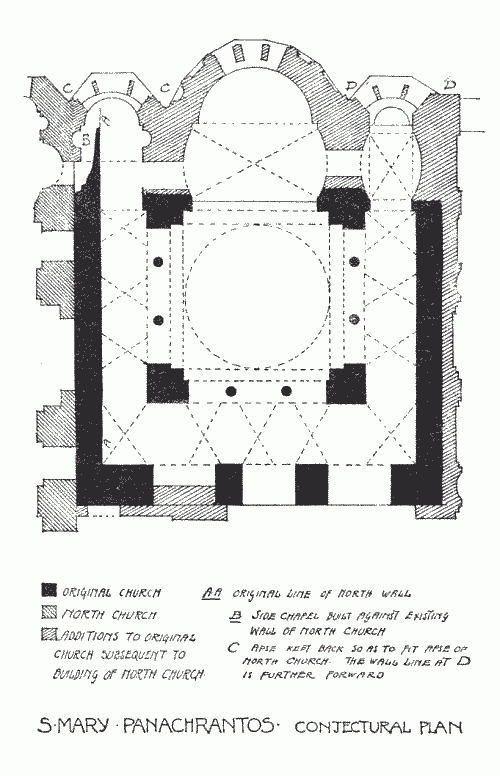 C C D D
A
B
A
ORIGINAL CHURCH
NORTH CHURCH
ADDITIONS TO ORIGINAL
CHURCH SUBSEQUENT TO
BUILDING OF NORTH CHURCH.
AA ORIGINAL LINE OF NORTH WALL
B SIDE CHAPEL BUILT AGAINST EXISTING
WALL OF NORTH CHURCH
C APSE KEPT BACK SO AS TO FIT APSE OF
NORTH CHURCH. THE WALL LINE AT D
IS FURTHER FORWARD
S·MARY·PANACHRANTOS· CONJECTURAL PLAN